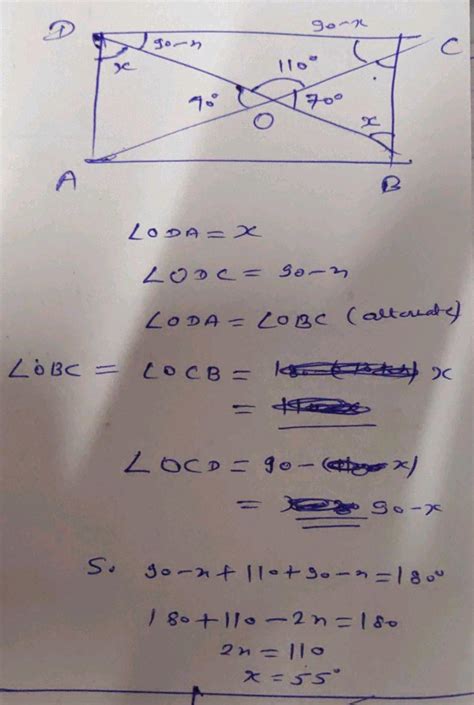 D 90-x 90-x C
x 110°
70° 70° x
O
A B
∠ODA = x
∠ODC = 90-x
∠ODA = ∠OBC (alternate)
∠OBC = ∠OCB = x
=
∠OCD = 90-( x)
= 90-x
So 90-x+110+90-x=180°
180+110-2x=180
2x=110
x=55°